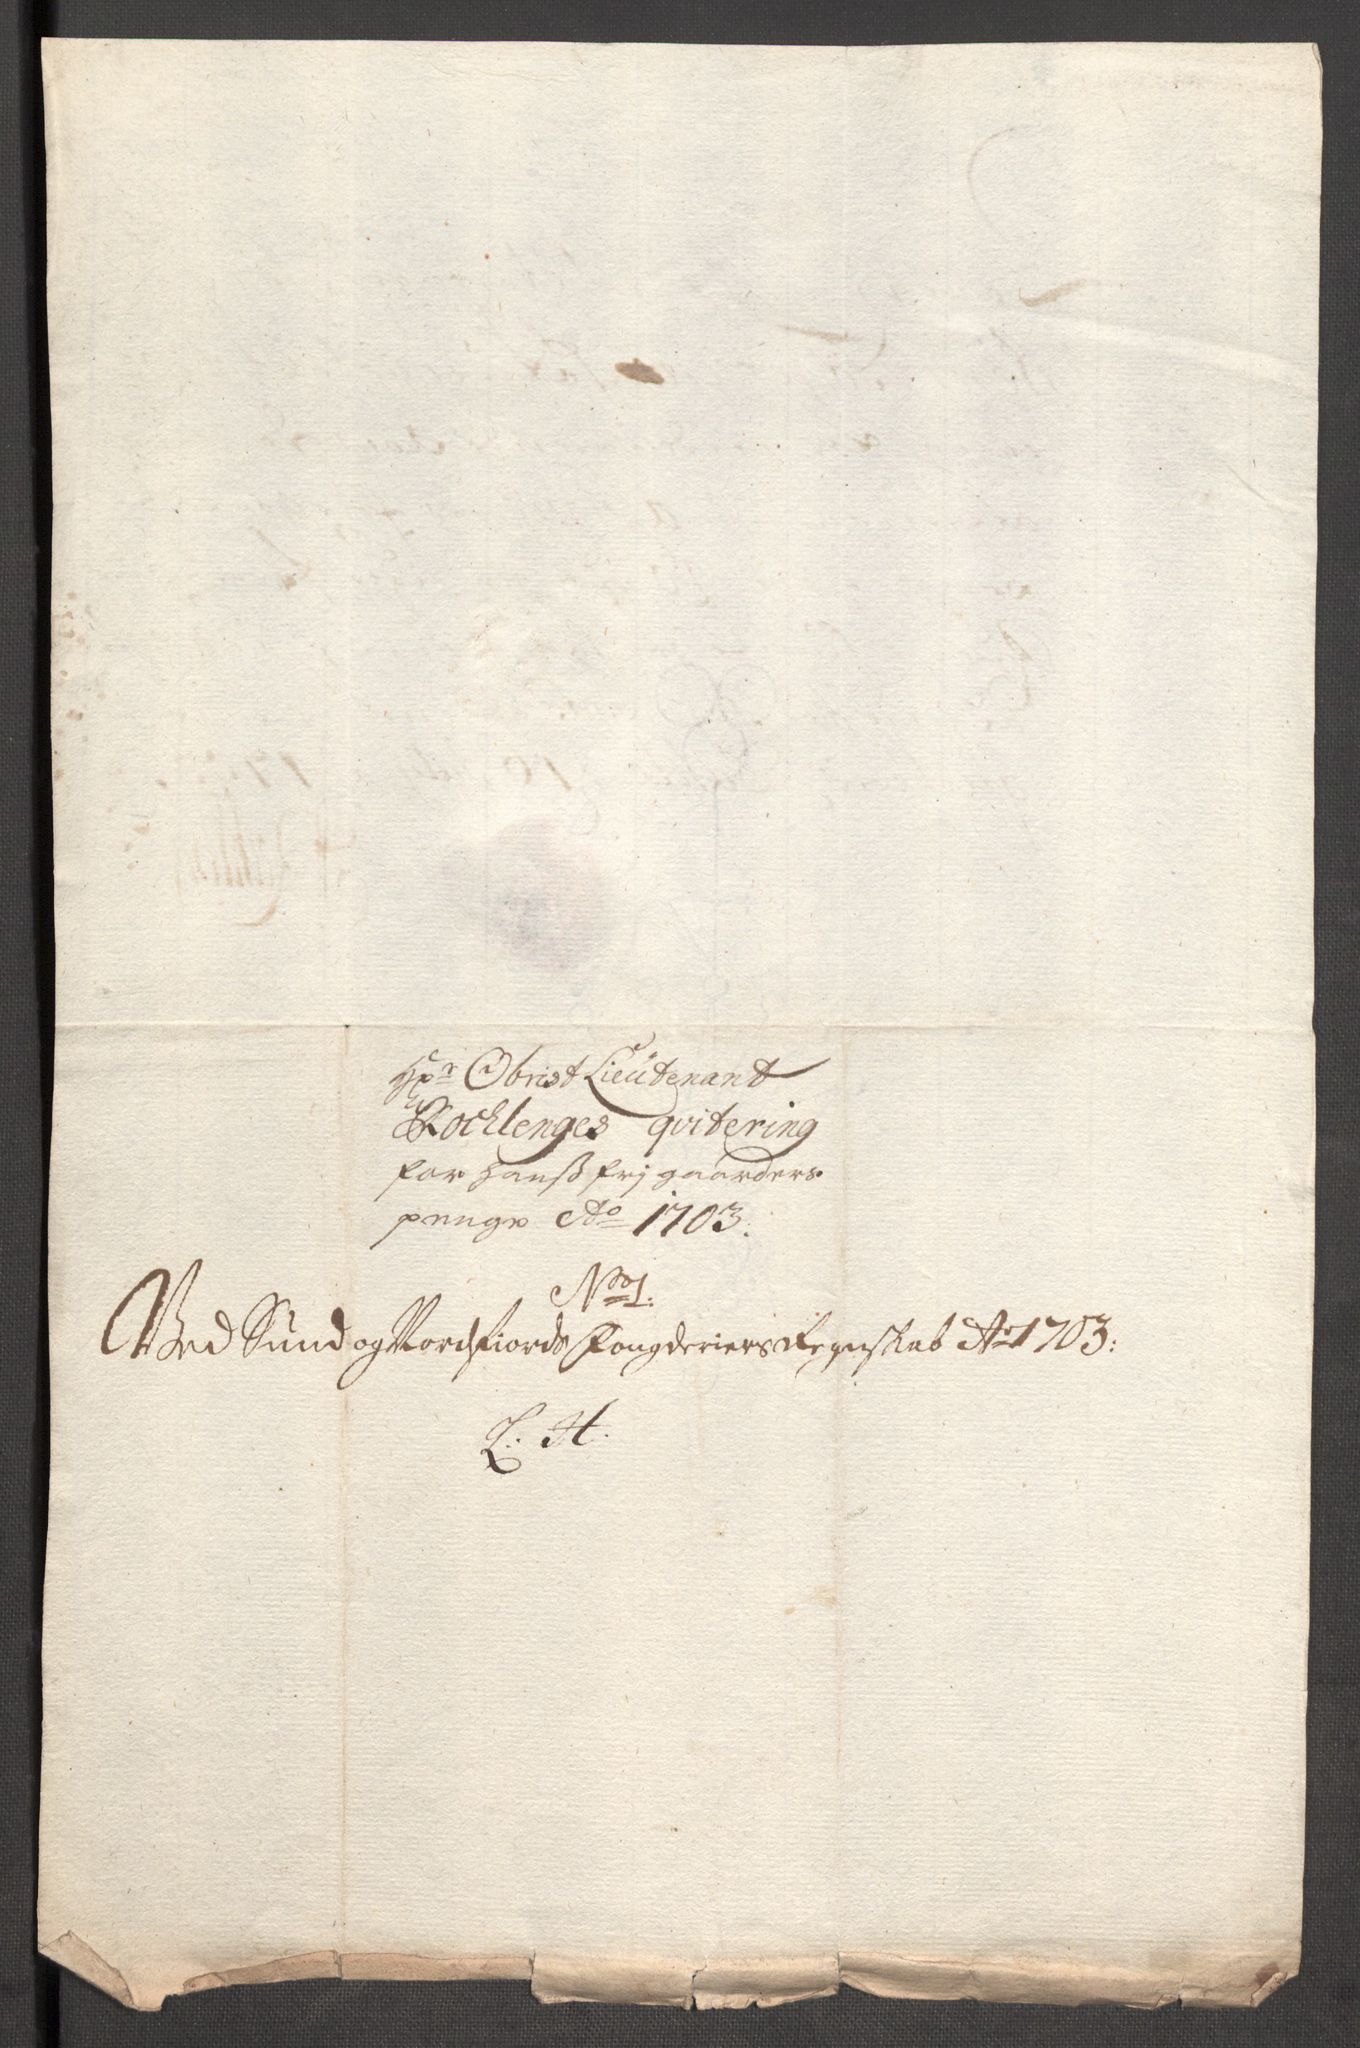 Hr Obrist Lieütenant
Rochlenges qvitering
for hanß frj gaarders
penge Ao 1703.
No 1.
Ved Sünd og Nordfiords Fougderiers Regnskab Ao 1703:
L: H.